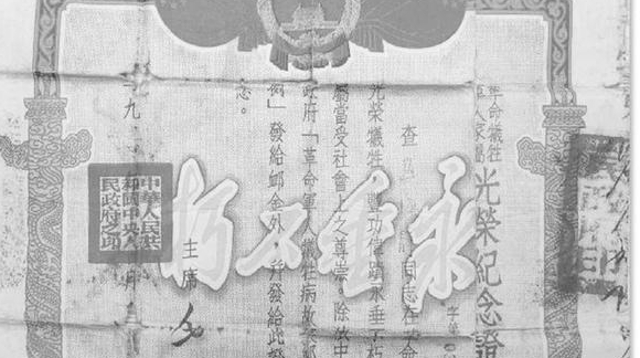 革命犧牲
軍人家屬
光榮紀念證
字第
查
同志在革命
光榮犧牲，豐功偉績永垂不朽
屬當受社會上之尊崇。除依中
政府「革命軍人犧牲病故褒
例」發給卹金外，并發給此證
念。
永垂不朽
主席 毛
中華人民共
和國中央人
民政府之印
九
月